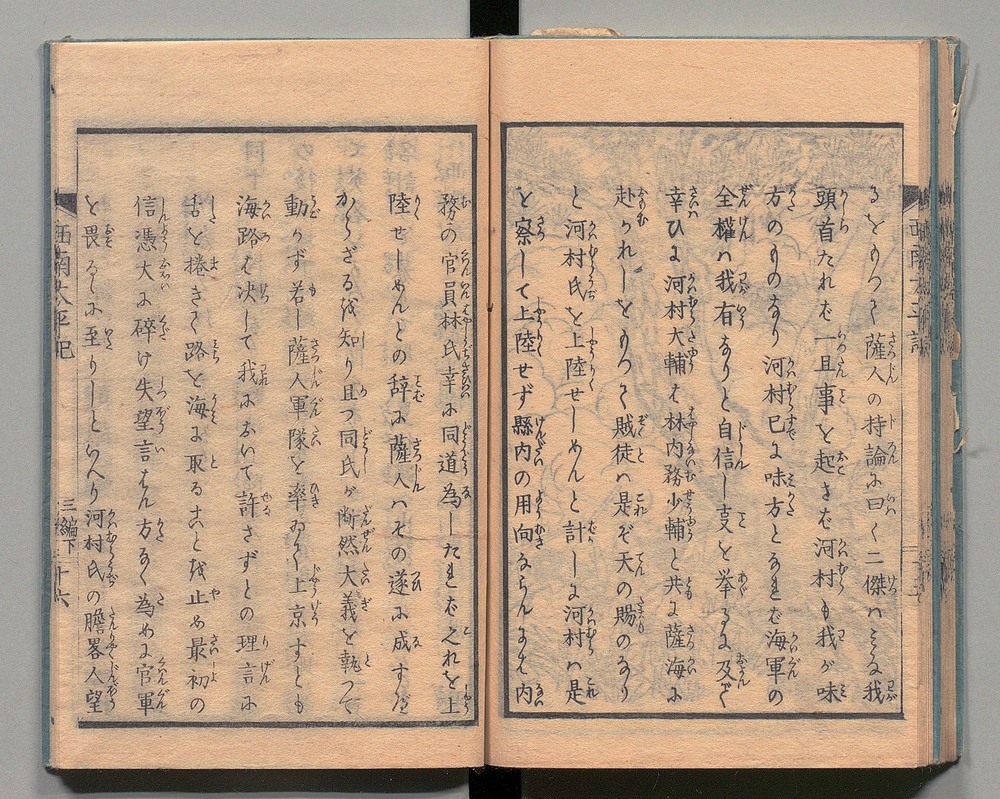 るをもつて薩人の持論に曰く二傑ハミな我
頭首たれば一旦事を起さば河村も我が味
方のものなり河村已に味方となれば海軍の
全権ハ我有なりと自信し支を挙るに及で
幸ひに河村大輔は林内務少輔と共に薩海に
赴かれしをもつて賊徒ハ是ぞ天の賜のなり
と河村氏を上陸せしめんと計しに河村ハ是
を察して上陸せず縣内の用向ならんにハ内
務の官員林氏幸に同道為したれば之れを上
陸せしめんとの辞に薩人ハその遂に成すべ
からざるを知り且つ同氏が断然大義を執つて
動かず若し薩人軍隊を率ゐて上京すとも
海路は决して我において許さずとの理言に
舌を捲きて路を海に取ることを止め最初の
信憑大に碎け失望言はん方なく為めに官軍
を畏るゝに至りしといへり河村氏の膽畧人望
西南太平記
三編下
二十六